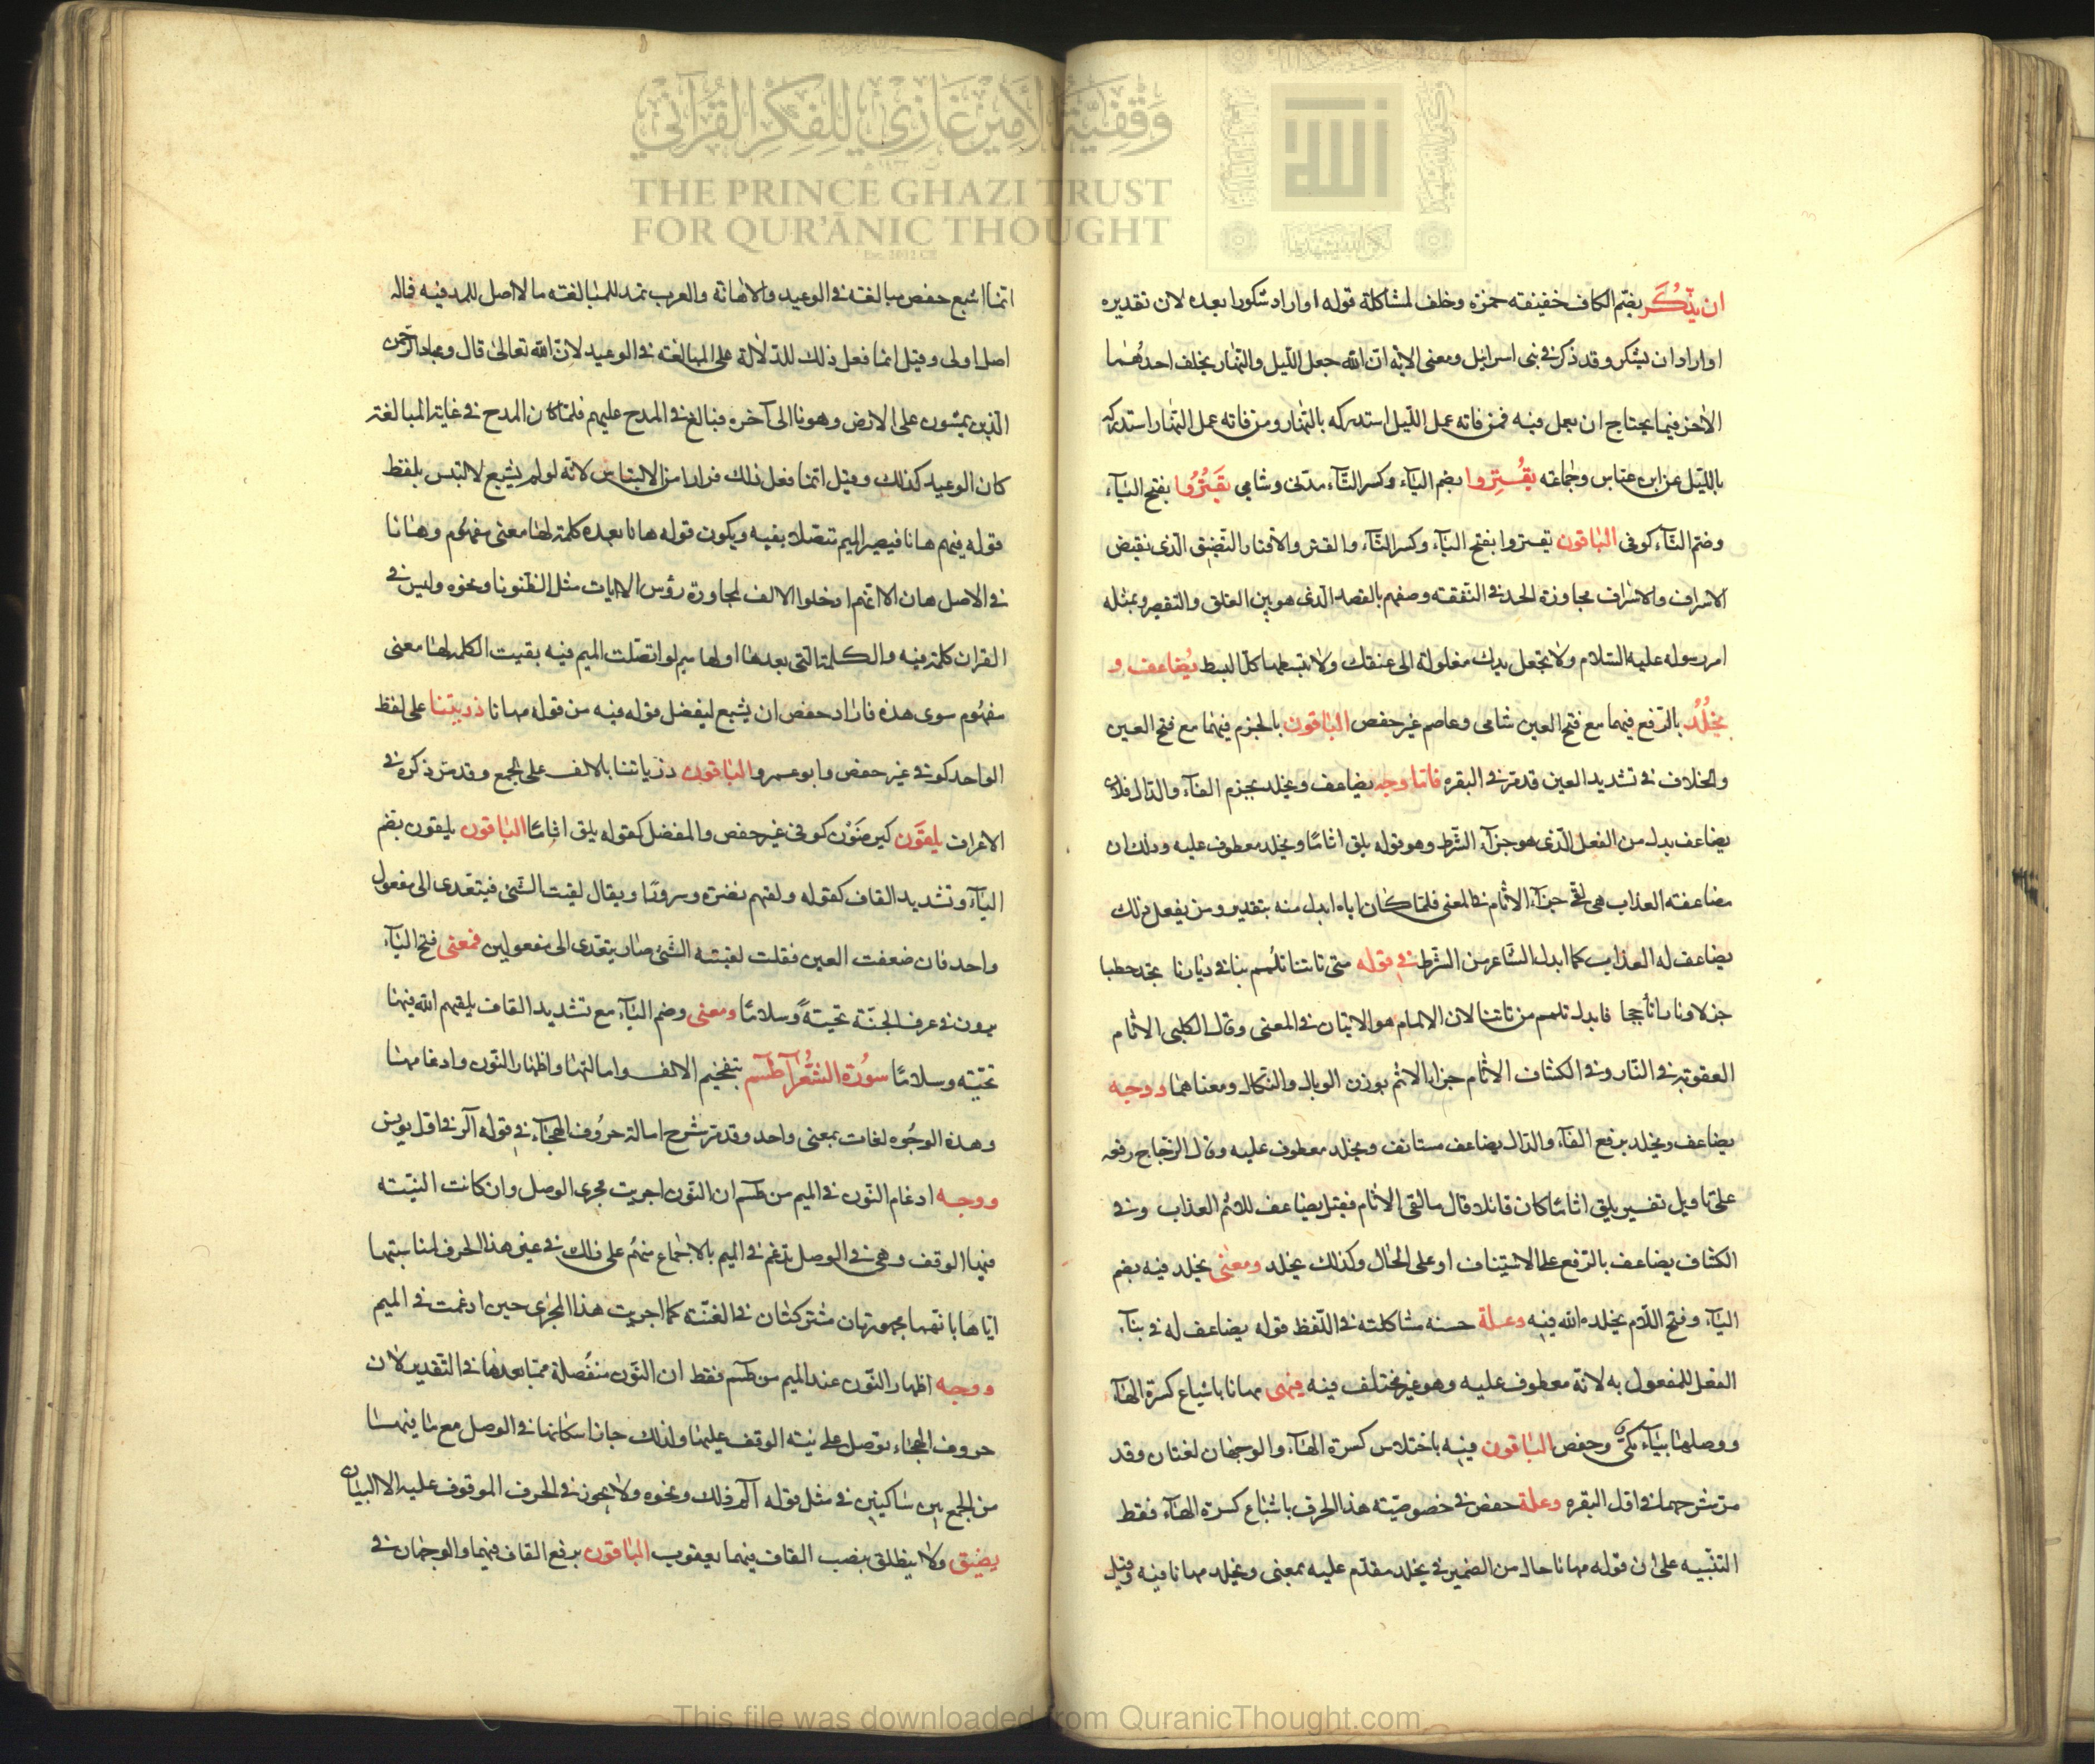 وقفية الأمير غازي للفكر القرآني
THE PRINCE GHAZI TRUST
FOR QUR'ĀNIC THOUGHT
Est. 2012 CE
ان يذكر بضم الكاف خفيفة حمزه وخلف لمشاكلة قوله او اراد شكورا بعده لان تقديره
او اراد ان يشكر وقد ذكر في بنى اسرائيل ومعنى الاية ان الله جعل الليل والنهار يخلف احدهما
الاخر فيما يحتاج ان يعمل فيه فمن فاته عمل الليل استدركه بالنهار ومن فاته عمل النهار استدركه
بالليل عن ابن عباس وجماعة يُقْتِروا بضم الياء وكسر التاء مدنى وشامى يَقْتُرُوا بفتح الياء
وضم التاء كوفى الباقون يقتروا بفتح الياء وكسر التاء والقتر والاقتار التضييق الذى نقيض
الاسراف والاسراف مجاوزة الحد فى النفقة وصفهم بالقصد الذى هو بين الغلو والتقصير وبمثله
امر رسوله عليه السلام ولا تجعل يدك مغلولة الى عنقك ولا تبسطها كل البسط يُضاعف و
يخلُدُ بالرفع فيهما مع فتح العين شامى وعاصم غير حفص الباقون بالجزم فيهما مع فتح العين
والخلاف فى تشديد العين قد مر فى البقره فاما وجه يضاعف ويخلد بجزم الفاء والدال فلان
يضاعف بدل من الفعل الذى هو جزاء الشرط وهو قوله يلق اثامًا ويخلد معطوف عليه وذلك ان
مضاعفة العذاب هى لقى جزاء الاثام فى المعنى فلما كان اياه ابدل منه بتقدير ومن يفعل ذلك
يضاعف له العذاب كما ابدل الشاعر من الشرط فى قوله متى تاتنا تلمم بنا فى ديارنا تجد حطبا
جزلا ونارا تأججا فابدل تلمم من تاتنا لان الالمام هو الاتيان فى المعنى وقال الكلبى الاثام
العقوبة فى النار وفى الكشاف الاثام جزاء الاثم بوزن الوبال والنكال ومعناهما ووجه
يضاعف ويخلد برفع الفاء والدال يضاعف مستانف ويخلد معطوف عليه وقال الزجاج رفعه
على تاويل تفسير يلق اثاما كان قائلا قال ما لقى الاثام فقيل يضاعف للاثم العذاب وفى
الكشاف يضاعف بالرفع على الاستيناف او على الحال وكذلك يخلد ومعنى يخلد فيه بضم
الياء وفتح اللام يخلده الله فيه وعلة حسنه مشاكلته فى اللفظ قوله يضاعف له فى بناء
الفعل للمفعول به لانه معطوف عليه وهو غير مختلف فيه فيهى مهانا باشباع كسرة الهاء
ووصلها بياء مكى وحفص الباقون فيه باختلاس كسرة الهاء والوجهان لغتان وقد
مر شرحهما فى اول البقره وعلة حفص فى خصوصية هذا الحرف باشباع كسرة الهاء فقط
التنبيه على ان قوله مهانا حال من الضمير فى يخلد مقدم عليه بمعنى ويخلد مهانا فيه وقيل
انما اشبع حفص مبالغة فى الوعيد والاهانة والعرب تمد للمبالغة ما لا اصل للمد فيه فاله
اصل اولى وقيل انما فعل ذلك للدلالة على المبالغة فى الوعيد لان الله تعالى قال وعباد الرحمن
الذين يمشون على الارض هونا الى آخره فبالغ فى المدح عليهم فلما كان المدح فى غاية المبالغة
كان الوعيد كذلك وقيل انما فعل ذلك فرارا من الالتباس لانه لو لم يشبع لالتبس بلفظ
قوله فيهم هانا فيصير الميم متصلا بفيه ويكون قوله هانا بعده كلمة لها معنى مفهوم وهانا
فى الاصل هان الا انهم ادخلوا الالف لمجاورة رؤس الايات مثل الظنونا ونحوه وليس فى
القران كلمة فيه والكلمة التى بعدها اولها ميم لو اتصلت الميم فيه بقيت الكلمة لها معنى
مفهوم سوى هذه فاراد حفص ان يشبع ليفصل قوله فيه من قوله مهانا ذريتنا على لفظ
الواحد كوفى غير حفص وابو عمرو الباقون ذرياتنا بالالف على الجمع وقد مر ذكره فى
الاعراف يلقَون كيرضَوْن كوفى غير حفص والمفضل كقوله يلق اثامًا الباقون يلقون بضم
الياء وتشديد القاف كقوله ولقيهم نضرة وسرورًا ويقال لقيت الشئ فيتعدى الى مفعول
واحد فان ضعفت العين فقلت لقيته الشئ صار يتعدى الى مفعولين فمعنى فتح الياء
يرون فى غرف الجنة تحيةً وسلامًا ومعنى وضم الياء مع تشديد القاف يلقيهم الله فيها
تحية وسلامًا سورة الشعرآ طسم بتفخيم الالف وامالتها واظهار النون وادغامها
وهذه الوجوه لغات بمعنى واحد وقد مر شرح امالة حروف الهجاء فى قوله آلر فى اول يونس
ووجه ادغام النون فى الميم من طسم ان النون اجريت مجرى الوصل وان كانت النية
فيها الوقف وهى فى الوصل تدغم فى الميم بالاجماع منهم على ذلك فى غير هذا الحرف لمناسبتهما
اياها بانهما مجهورتان مشتركتان فى الغنة كما اجريت هذا المجرى حين ادغمت فى الميم
ووجه اظهار النون عند الميم من طسم فقط ان النون منفصلة مما بعدها فى التقدير لان
حروف الهجاء توصل على نية الوقف عليها ولذلك جاز اسكانها فى الوصل مع ما فيها
من الجمع بين ساكنين فى مثل قوله آلم ذلك ونحوه ولا يجوز فى الحرف الموقوف عليه الا البيان
يضيق ولا ينطلق بنصب القاف فيهما يعقوب الباقون برفع القاف فيهما والوجهان فى
This file was downloaded from QuranicThought.com